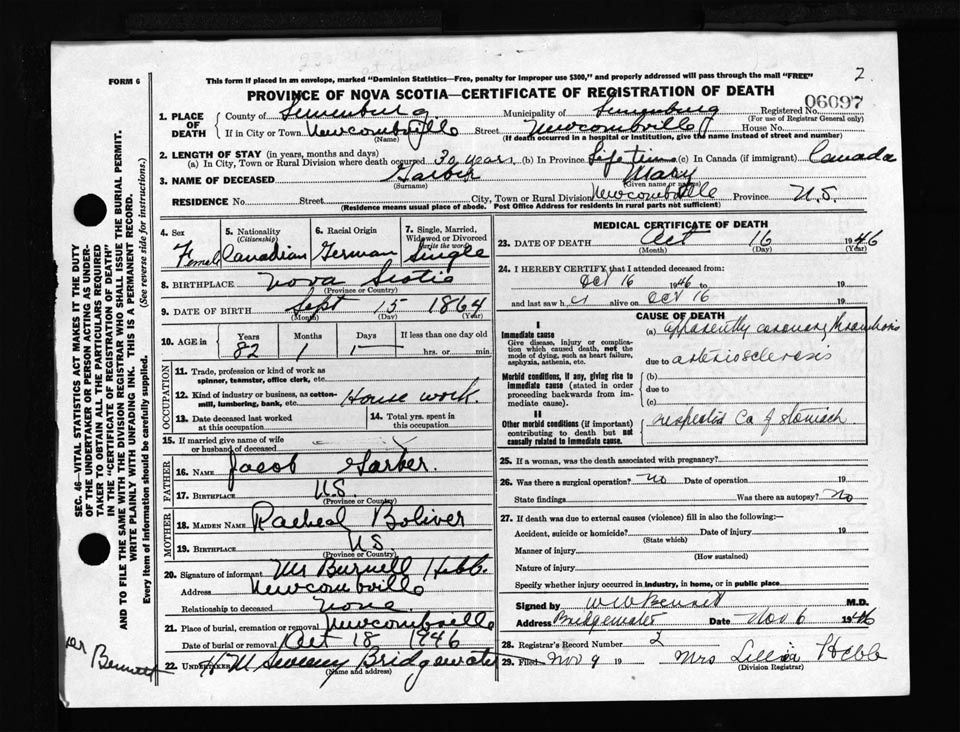 FORM 6
This form if placed in an envelope, marked "Dominion Statistics—Free, penalty for improper use $300," and properly addressed will pass through the mail "FREE"
2.
PROVINCE OF NOVA SCOTIA—CERTIFICATE OF REGISTRATION OF DEATH
06097
1. PLACE OF DEATH
County of Lunenburg Municipality of Lunenburg Registered No.
(For use of Registrar General only)
If in City or Town Newcombville Street Newcombville House No.
(Name) (If death occurred in a hospital or institution, give the name instead of street and number)
2. LENGTH OF STAY (in years, months and days)
(a) In City, Town or Rural Division where death occurred 30 years, (b) In Province Life time (c) In Canada (if immigrant) Canada
3. NAME OF DECEASED Garber Mary
(Surname) (Given name or names)
RESIDENCE No. Street City, Town or Rural Division Newcombville Province N.S.
(Residence means usual place of abode. Post Office Address for residents in rural parts not sufficient)
4. Sex Female
5. Nationality (Citizenship) Canadian
6. Racial Origin German
7. Single, Married, Widowed or Divorced (write the word) Single
8. BIRTHPLACE Nova Scotia
(Province or Country)
9. DATE OF BIRTH Sept 15 1864
(Month) (Day) (Year)
10. AGE in Years Months Days If less than one day old
82 1 1 hrs. or min.
OCCUPATION
11. Trade, profession or kind of work as spinner, teamster, office clerk, etc.
12. Kind of industry or business, as cotton-mill, lumbering, bank, etc. House work.
13. Date deceased last worked at this occupation
14. Total yrs. spent in this occupation
15. If married give name of wife or husband of deceased
FATHER
16. NAME Jacob Garber.
17. BIRTHPLACE N.S.
(Province or Country)
MOTHER
18. MAIDEN NAME Racheal Boliver
19. BIRTHPLACE NS
(Province or Country)
20. Signature of informant Mr Burnell Hebb.
Address Newcombville
Relationship to deceased none.
21. Place of burial, cremation or removal Newcombville
Date of burial or removal Oct 18 1946
22. UNDERTAKER Sweeny Bridgewater
(Name and address)
Bennett
MEDICAL CERTIFICATE OF DEATH
23. DATE OF DEATH Oct 16 1946
(Month) (Day) (Year)
24. I HEREBY CERTIFY that I attended deceased from:
Oct 16 1946 to 19
and last saw h er alive on Oct 16 19
CAUSE OF DEATH
I
Immediate cause
Give disease, injury or complication which caused death, not the mode of dying, such as heart failure, asphyxia, asthenia, etc.
(a) apparently coronary thrombosis
due to arteriosclerosis
Morbid conditions, if any, giving rise to immediate cause (stated in order proceeding backwards from immediate cause).
(b)
due to
(c)
II
Other morbid conditions (if important) contributing to death but not causally related to immediate cause.
suspected Ca of stomach
25. If a woman, was the death associated with pregnancy?
26. Was there a surgical operation? no Date of operation 19
State findings Was there an autopsy? no
27. If death was due to external causes (violence) fill in also the following:—
Accident, suicide or homicide? Date of injury 19
(State which)
Manner of injury
(How sustained)
Nature of injury
Specify whether injury occurred in industry, in home, or in public place
Signed by W W Bennett M.D.
Address Bridgewater Date Nov 6 1946
28. Registrar's Record Number 2
29. Filed Nov 9 19 Mrs Lillia Hebb
(Division Registrar)
SEC. 46—VITAL STATISTICS ACT MAKES IT THE DUTY
OF THE UNDERTAKER OR PERSON ACTING AS UNDER-
TAKER TO OBTAIN ALL THE PARTICULARS REQUIRED
IN THE "CERTIFICATE OF REGISTRATION OF DEATH"
AND TO FILE THE SAME WITH THE DIVISION REGISTRAR WHO SHALL ISSUE THE BURIAL PERMIT.
WRITE PLAINLY WITH UNFADING INK. THIS IS A PERMANENT RECORD.
Every item of information should be carefully supplied. (See reverse side for instructions.)